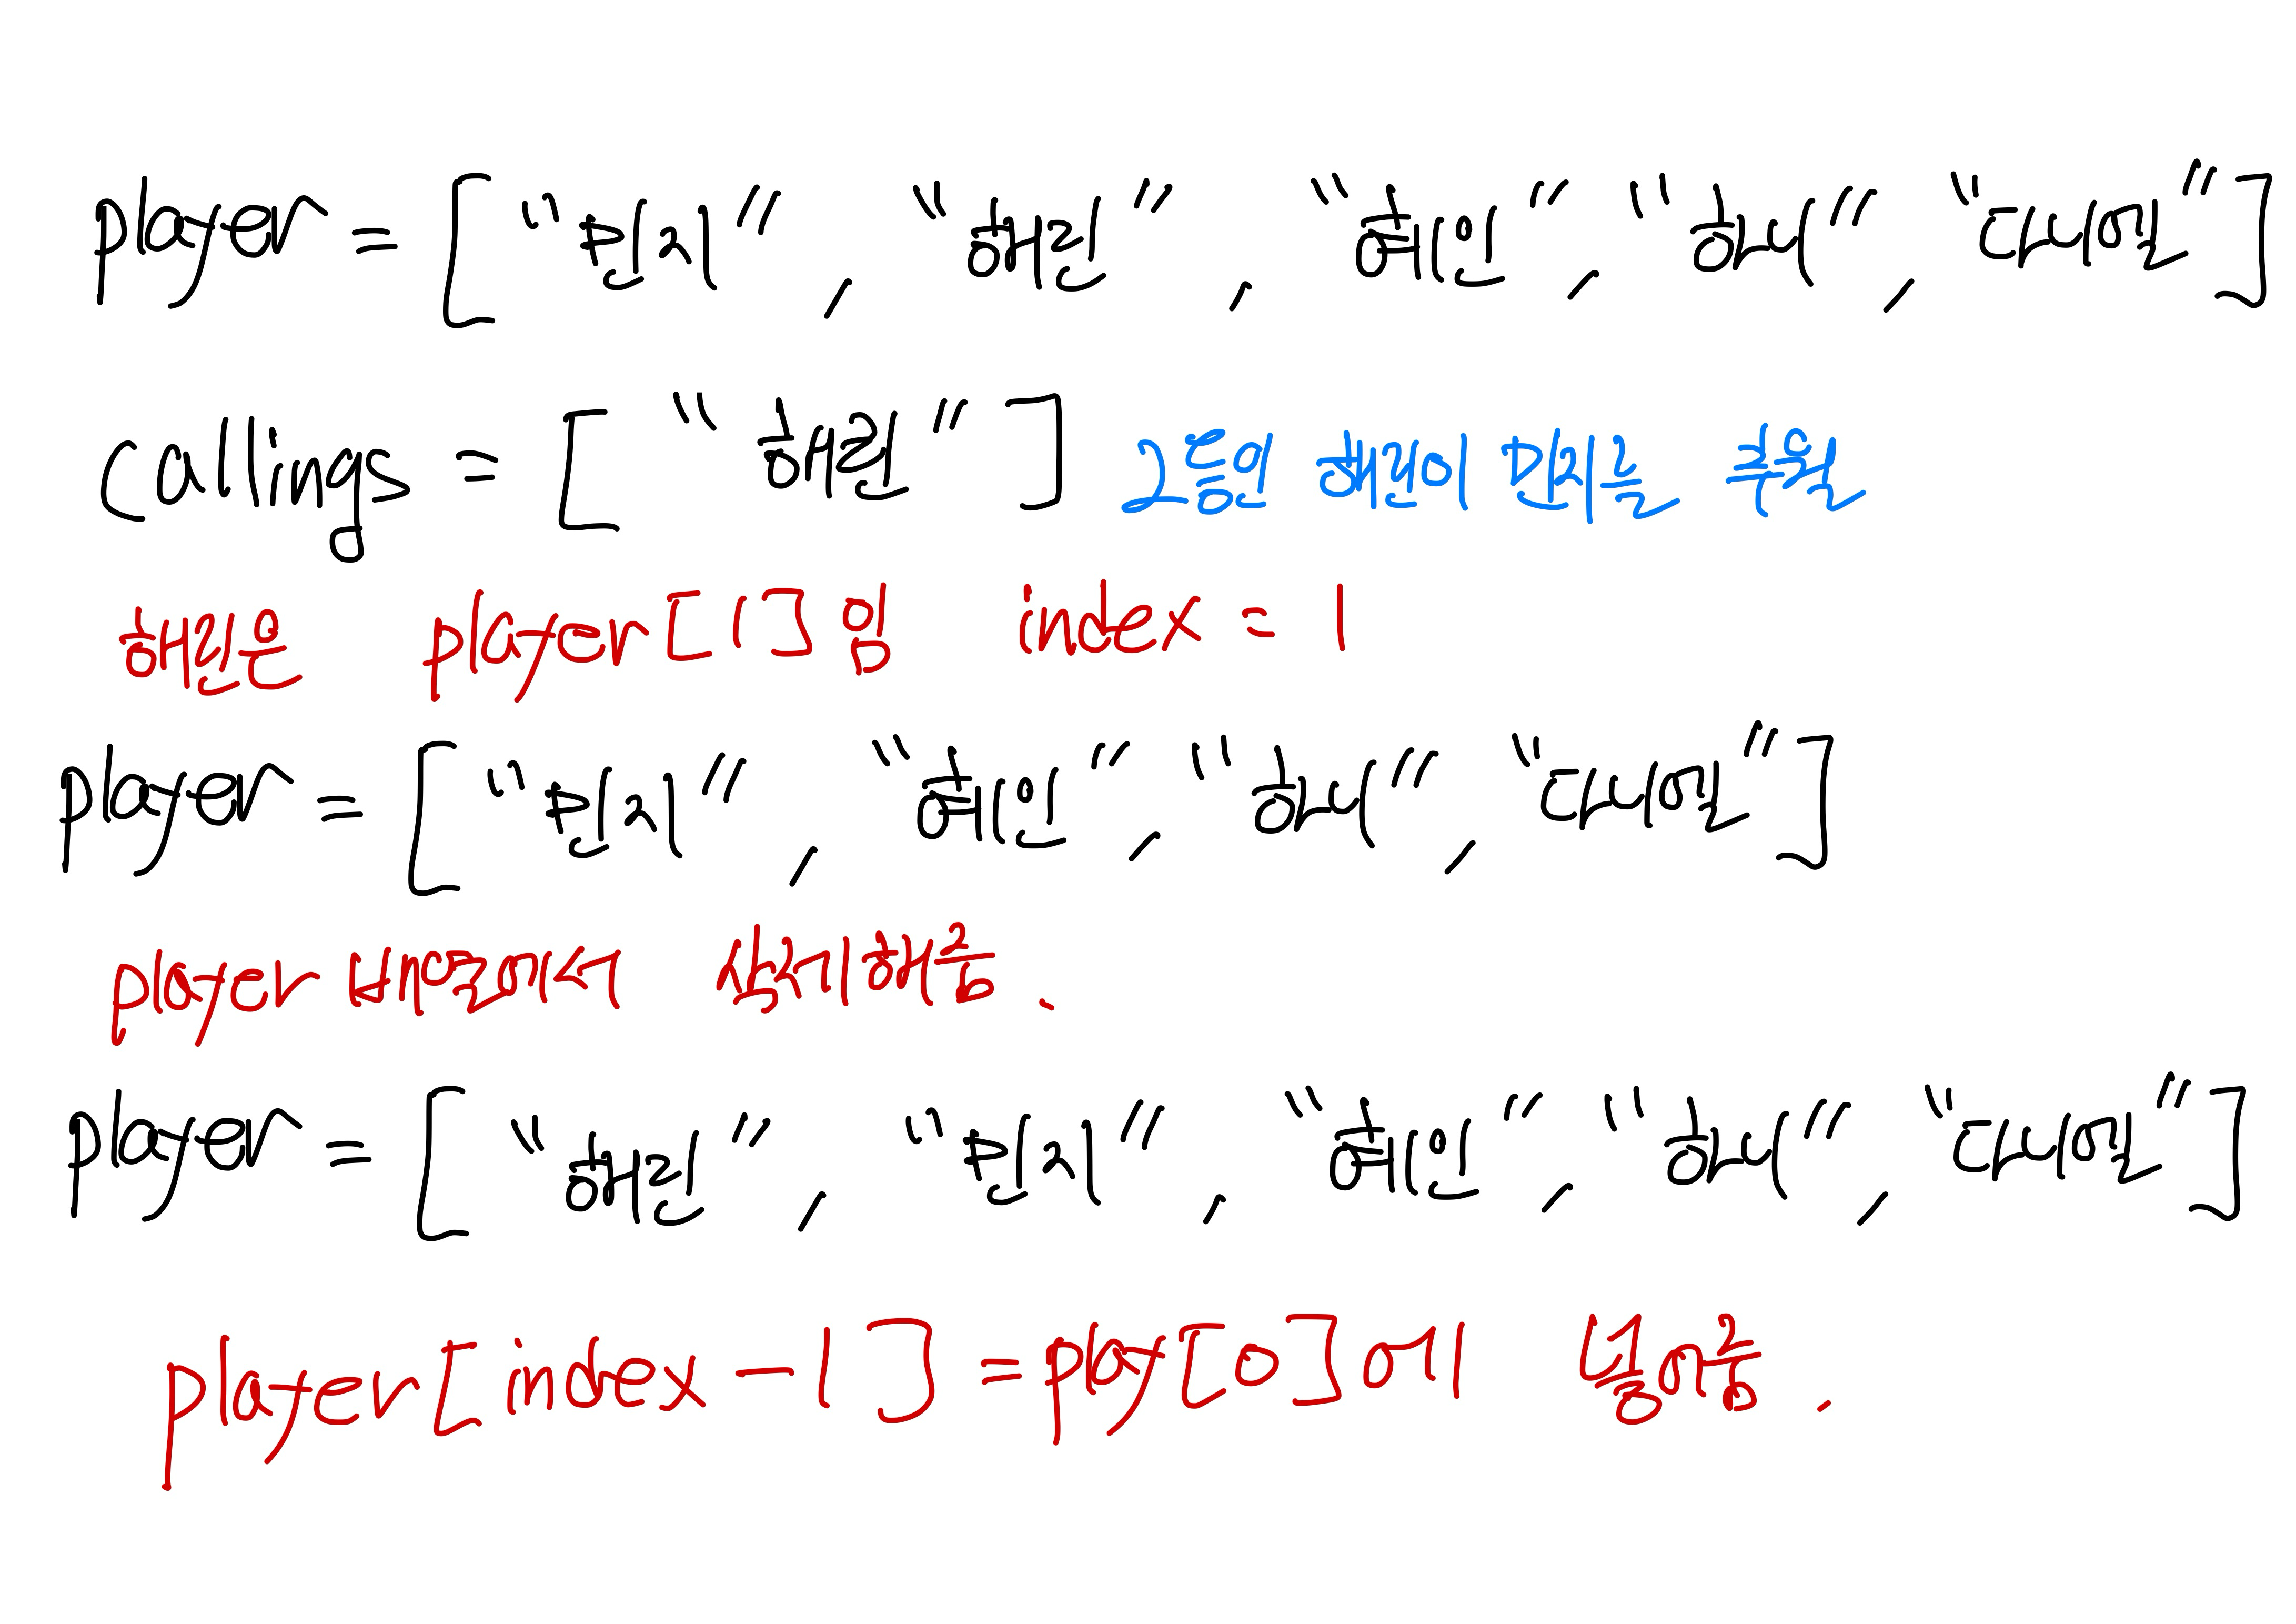 player = [ "민지", "해린", "혜인", "하니", "다니엘"]
callings = [ "해린" ] 2등인 해린이 민지를 추월
해린은 player[1]임 index = 1
player = [ "민지", "혜인", "하니", "다니엘"]
player 배열에서 삭제해줌.
player = [ "해린", "민지", "혜인", "하니", "다니엘"]
player[index-1] = play[0]에 넣어줌.